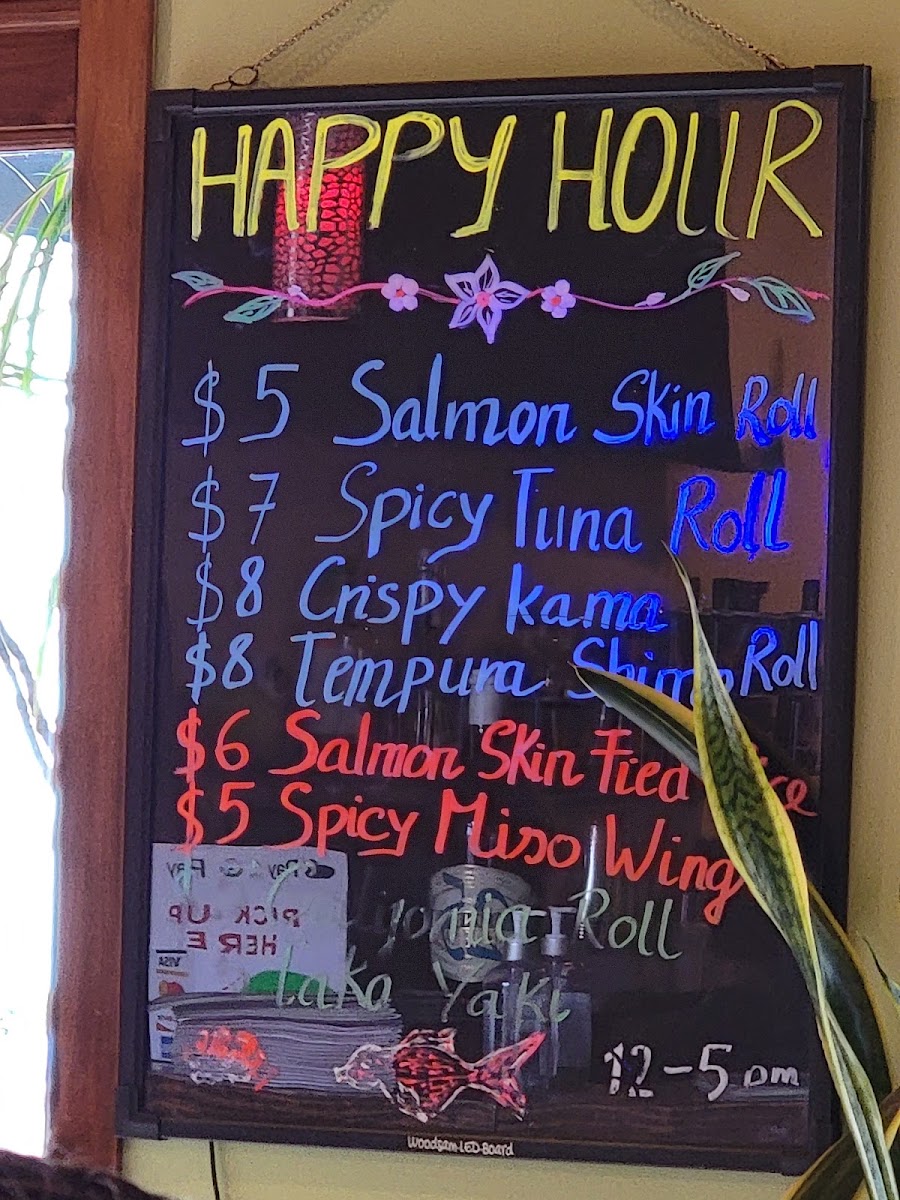 HAPPY HOUR
$5 Salmon Skin Roll
$7 Spicy Tuna Roll
$8 Crispy Kama
$8 Tempura Roll
$6 Salmon Skin Fied
$5 Spicy Miso Wing
Roll
Tako Yaki
12-5 pm
G Pay
PICK UP
HERE
VISA
Woodsam-LED-Board